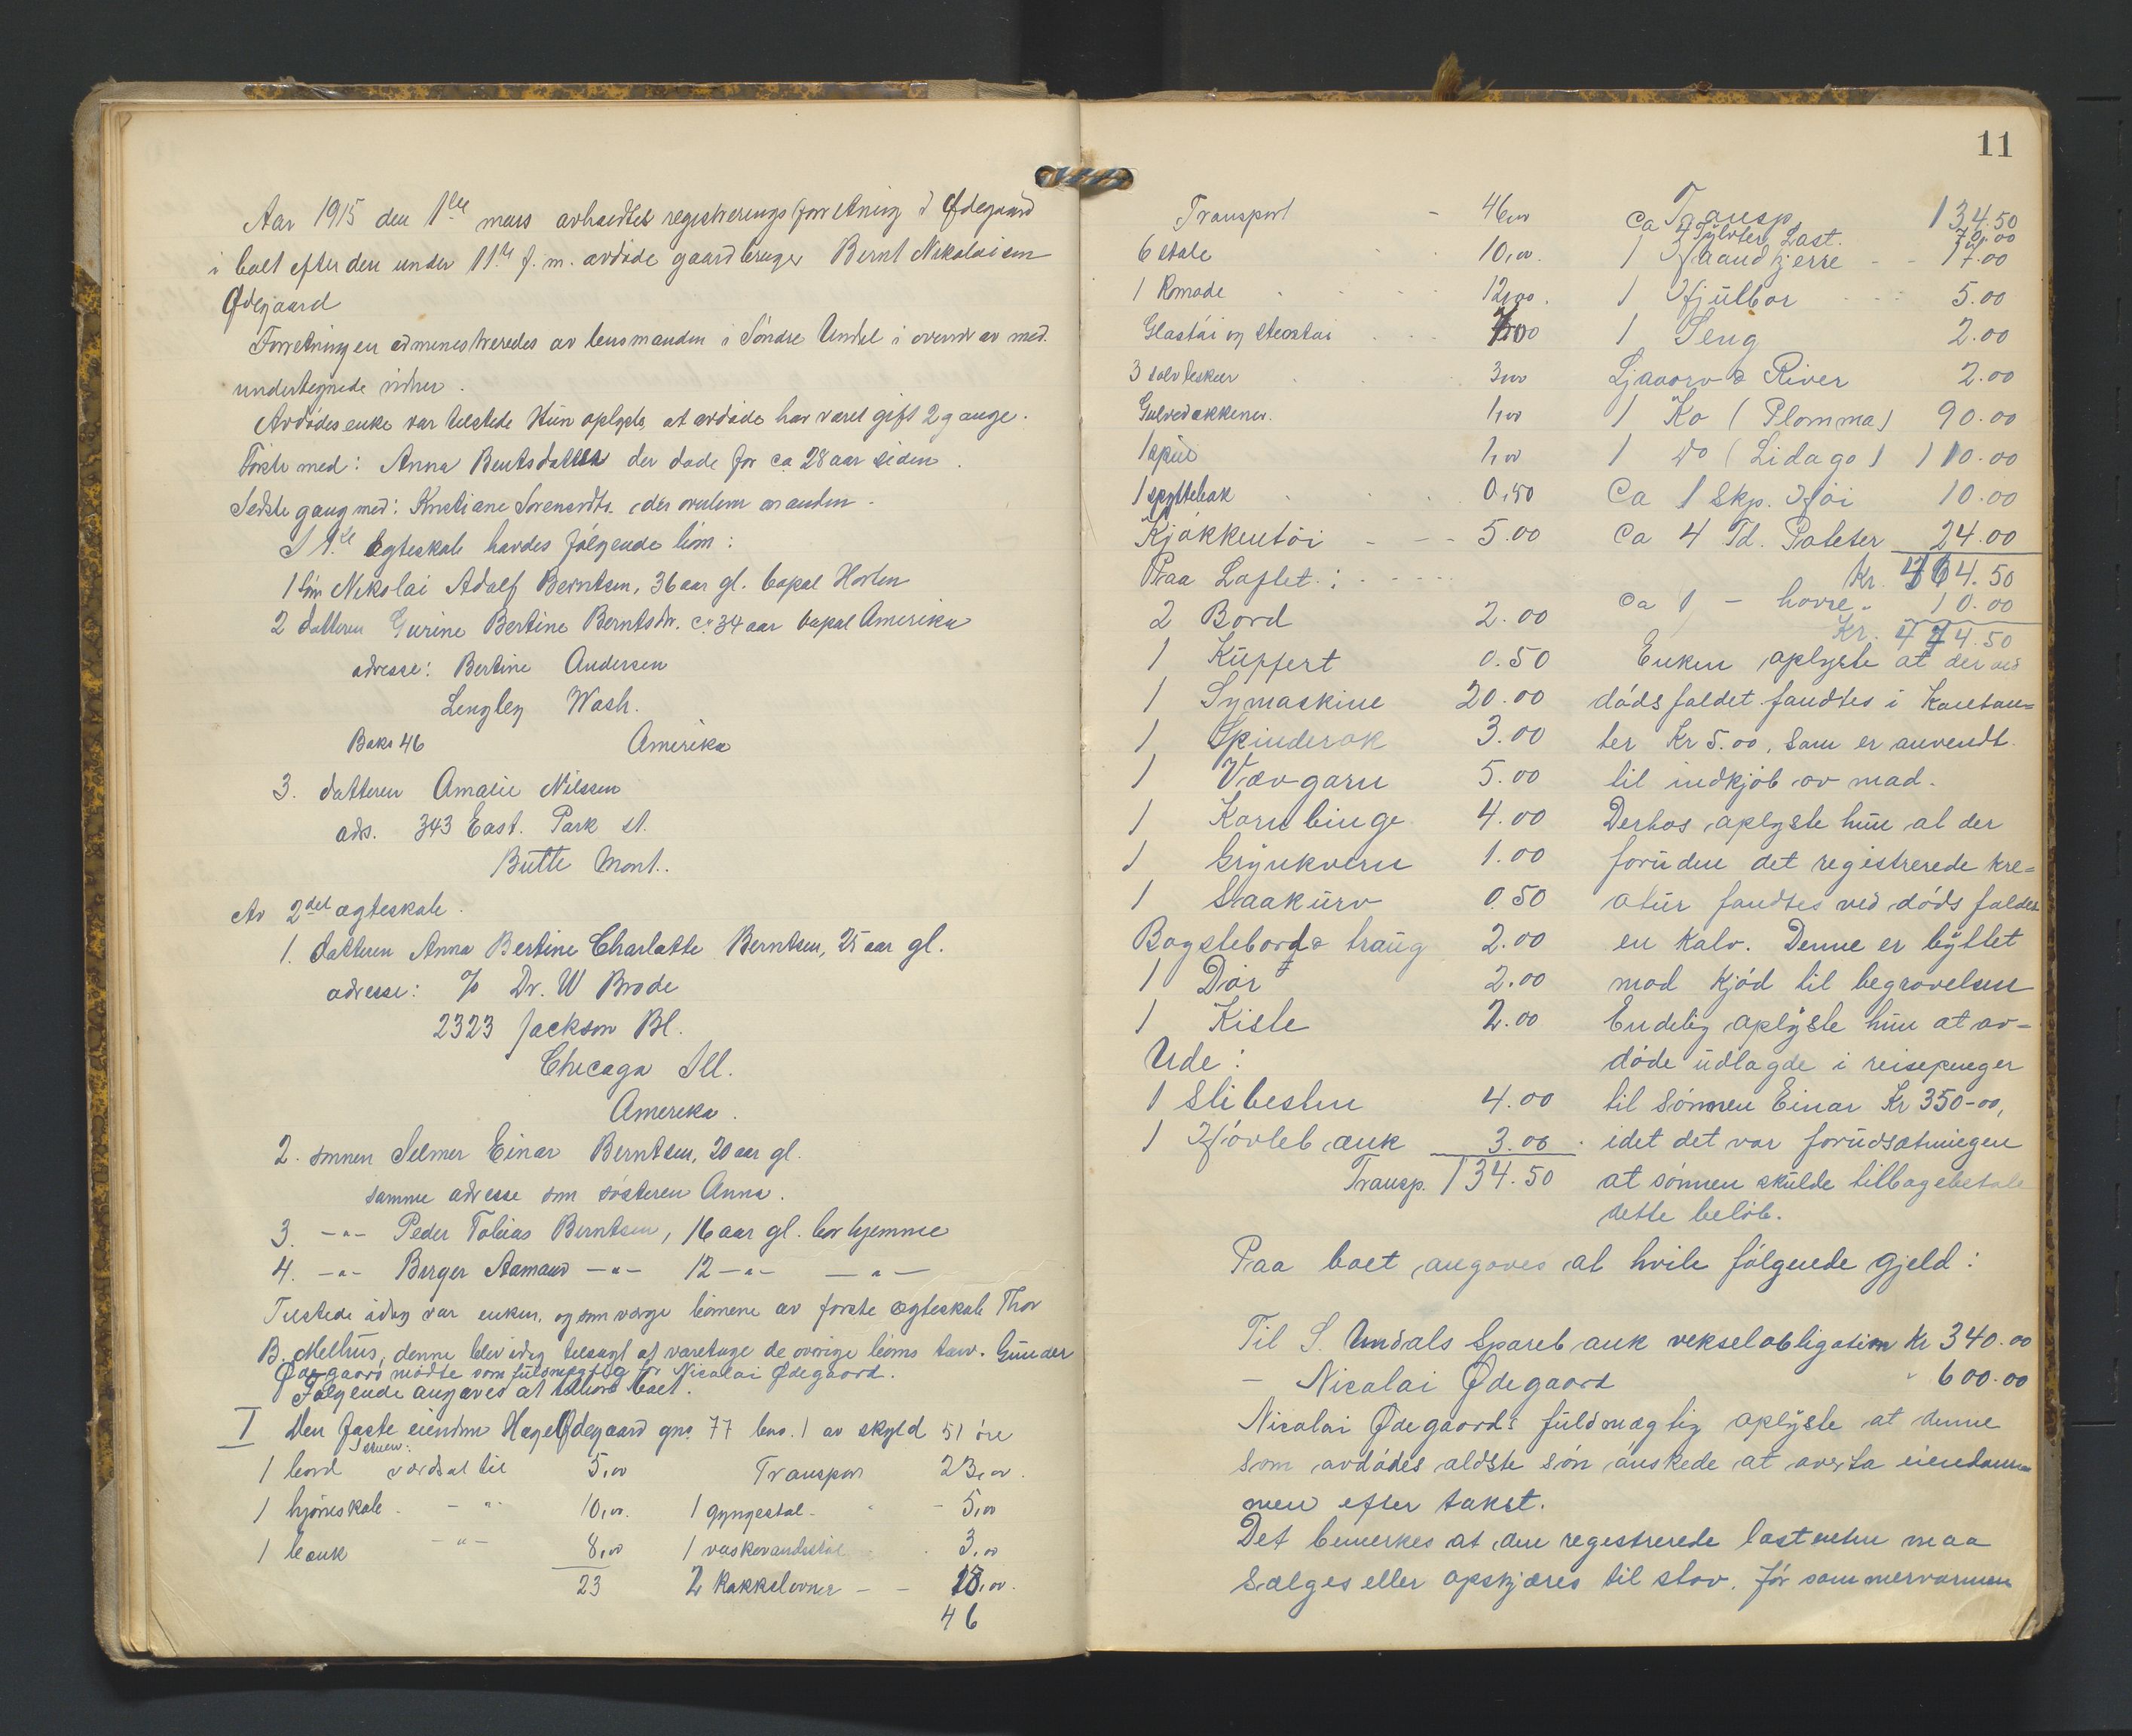 Aar 1915 den 1ste mars avholdtes registreringsforretning i Ødegaard
i boet efter den under 11te f. m. avdöde gaardbruger Bernt Nikolaisen
Ödegaard
Forretningen administreredes av lensmanden i Söndre Undal i overvær av med
undertegnede vidner.
Avdödes enke var tilstede Hun oplyste, at avdöde har været gift 2 gange.
Först med: Anna Bentsdatter der döde for ca 28 aar siden.
Sidste gang med: Kristiane Sorensdtr. der overlever manden.
I 1ste Egteskab havdes fölgende börn:
1 Sön Nikolai Adolf Berntsen, 36 aar gl. bopæl Horten
2 datteren Gurine Bertine Berntsdtr. ca 34 aar bopæl Amerika
adresse: Bertine Andersen
Lengley Wash.
Boks 46 Amerika
3. datteren Amalie Nilssen
ads. 343 East. Park st.
Butte Mont.
Av 2det ægteskab.
1. datteren Anna Bertine Charlotte Berntsen, 25 aar gl.
adresse: % Dr. W Brode
2323 Jackson Bl.
Chicago Ill.
Amerika.
2. sönnen Selmer Einar Berntsen, 20 aar gl.
samme adresse som sösteren Anna.
3. -"- Peder Tobias Berntsen, 16 aar gl. bor hjemme
4. -"- Birger Aamand -"- 12 -"- -"-
Tilstede idag var enken, og som værge börnene av förste ægteskab Thor
B. Melhus, denne blev idag tilsagt at varetage de övrige börns tarv. Gunder
Ödegaard mödte som fuldmægtig for Nicolai Ødegaard.
Fölgende angaves at tilhöre boet.
I Den faste eiendom Hagen Ødegaard gno. 77 bno. 1 av skyld 51 öre
I stuen:
1 bord værdsat til 5,00 Transport 23,00.
1 hjörneskab - " - 10,00. 1 gyngestol - 5,00
1 bænk - " - 8,00 1 vaskevandsstol 3,00
23 2 Kakkelovner - - 15,00.
46
11
Transport - 46,00
6 stole 10,00.
1 Komode 12,00.
Glastöi og Stentöi 7,00
3 sölvteskeer 3,00
Gulvedækkener. 1,00
1 speil 1,00
1 spyttebak 0,50
Kjökkentöi - - - 5.00
Paa Loftet:
2 Bord 2.00
1 Kuffert 0.50
1 Symaskine 20.00
1 Spinderok 3.00
1 Vævgarn 5.00
1 Kornbinge 4.00
1 Grynkvern 1.00
1 Saakurv 0.50
Bagstebord & traug 2.00
1 Dör 2.00
1 Kiste 2.00
Ude:
1 Slibesten 4.00
1 Hövlebænk 3.00
Transp. 134.50
Transp. 134.50
Ca 4 Tylvter Last. 70.00
1 Haandkjerre - - 17.00
1 Hjulbör 5.00
1 Seng 2.00
Ljaaorv & River 2.00
1 Ko (Plomma) 90.00
1 do (Lidago) 110.00
Ca 1 Skp. Höi 10.00
Ca 4 Td. Poteter 24.00
Kr. 464.50
Ca 1 - havre " 10.00
Kr. 474.50
Enken oplyste at der ved
dödsfaldet fandtes i Kontan=
ter Kr 5.00, som er anvendt
til indkjöb av mad.
Derhos oplyste hun at der
foruden det registrerede kre=
atur fandtes ved dödsfaldet
en Kalv. Denne er byttet
mod Kjöd til begravelsen
Endelig oplyste hun at av-
döde udlagde i reisepenger
til Sönnen Einar Kr 350-00,
idet det var forudsætningen
at sönnen skulde tilbagebetale
dette belöb.
Paa boet angaves at hvile fölgende gjeld:
Til S. Undals Sparebank vekselobligation Kr 340.00
- Nicolai Ødegaard " 600.00
Nicolai Ødegaards fuldmægtig oplyste at denne
som avdödes ældste sön önskede at overta eiendom=
men efter takst.
Det bemerkes at den registrerede last enten maa
Sælges eller opskjæres til stav, för sommervarmen